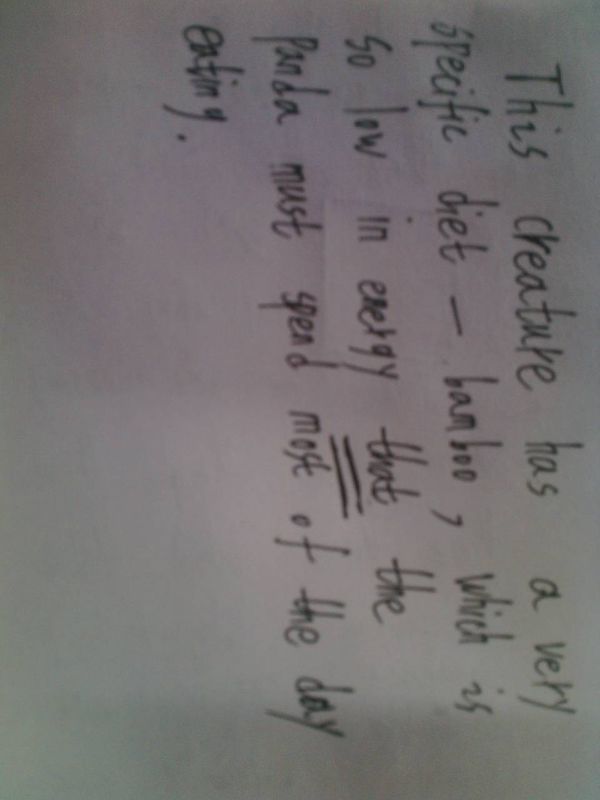 This creature has a very
specific diet — bamboo, which is
so low in energy that the
panda must spend most of the day
eating.